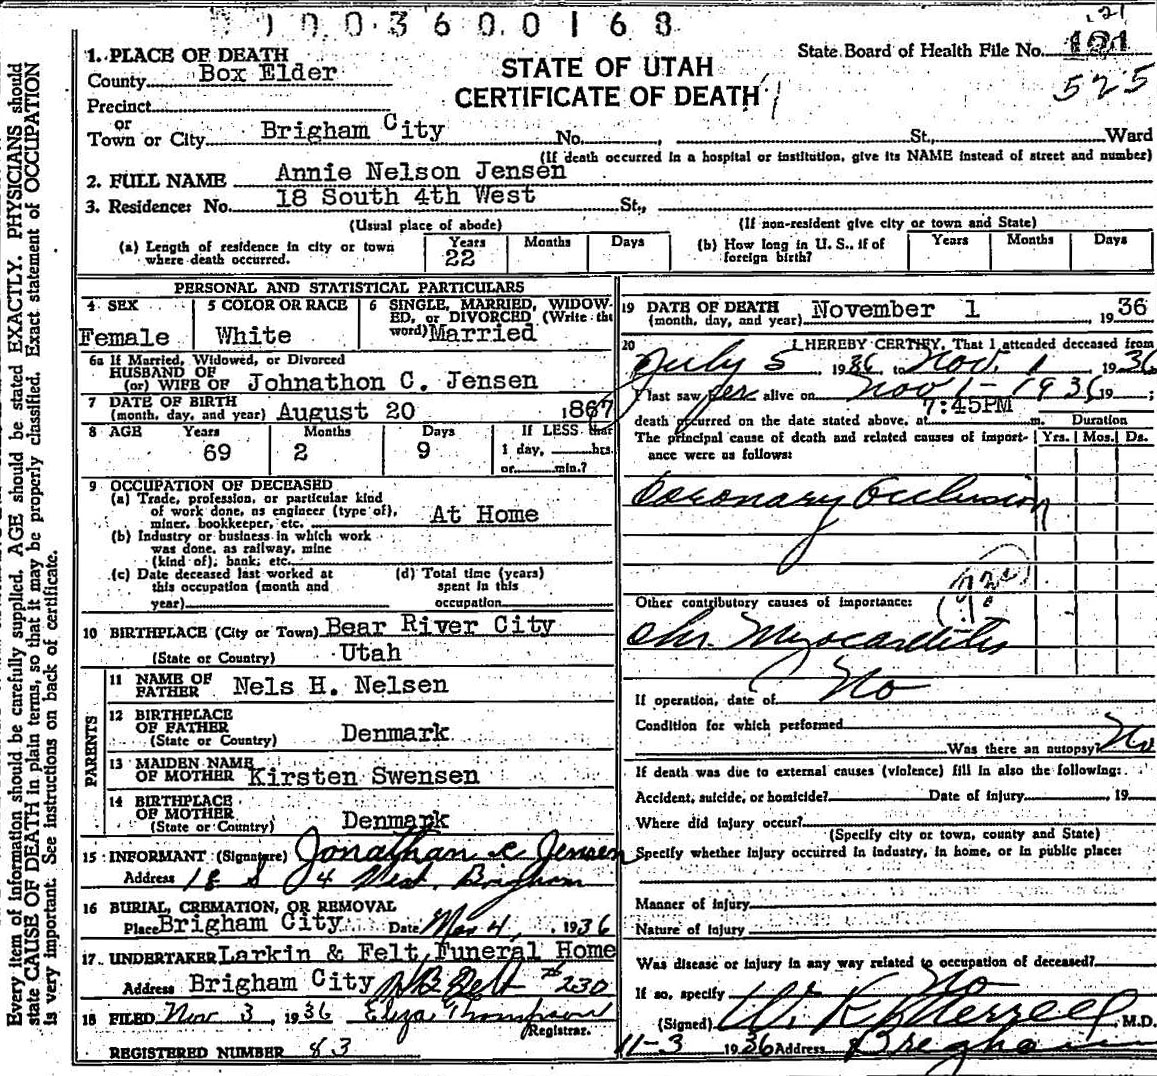 1003600168
121
State Board of Health File No. 121
525
1. PLACE OF DEATH
County Box Elder
STATE OF UTAH
CERTIFICATE OF DEATH
Precinct
or
Town or City Brigham City No. St., Ward
(If death occurred in a hospital or institution, give its NAME instead of street and number)
2. FULL NAME Annie Nelson Jensen
3. Residence: No. 18 South 4th West St.,
(Usual place of abode) (If non-resident give city or town and State)
(a) Length of residence in city or town where death occurred. Years 22 Months Days (b) How long in U. S., if of foreign birth? Years Months Days
PERSONAL AND STATISTICAL PARTICULARS
4 SEX Female 5 COLOR OR RACE White 6 SINGLE, MARRIED, WIDOWED, or DIVORCED (Write the word) Married
6a If Married, Widowed, or Divorced
HUSBAND OF
(or) WIFE OF Johnathon C. Jensen
7 DATE OF BIRTH
(month, day, and year) August 20 1867
8 AGE Years 69 Months 2 Days 9 If LESS than 1 day, hrs. or min.?
9 OCCUPATION OF DECEASED
(a) Trade, profession, or particular kind
of work done, as engineer (type of),
miner, bookkeeper, etc. At Home
(b) Industry or business in which work
was done, as railway, mine
(kind of); bank; etc.
(c) Date deceased last worked at
this occupation (month and
year)
(d) Total time (years)
spent in this
occupation
10 BIRTHPLACE (City or Town) Bear River City
(State or Country) Utah
PARENTS
11 NAME OF
FATHER Nels H. Nelsen
12 BIRTHPLACE
OF FATHER
(State or Country) Denmark
13 MAIDEN NAME
OF MOTHER Kirsten Swensen
14 BIRTHPLACE
OF MOTHER
(State or Country) Denmark
15 INFORMANT (Signature) Jonathan C Jensen
Address 18 S 4 West. Brigham
16 BURIAL, CREMATION, OR REMOVAL
Place Brigham City Date Nov 4, 1936
17. UNDERTAKER Larkin & Felt Funeral Home
Address Brigham City #230
18 FILED Nov 3, 1936 Eliza Thompson
Registrar.
REGISTERED NUMBER 83
19 DATE OF DEATH
(month, day, and year) November 1 1936
20 I HEREBY CERTIFY, That I attended deceased from
July 5 1936 to Nov. 1 1936
I last saw her alive on Nov 1 - 1936 19 ;
death occurred on the date stated above, at 7:45PM m.
The principal cause of death and related causes of importance were as follows:
Duration
Yrs. Mos. Ds.
Coronary Occlusion
Other contributory causes of importance:
Chr. Myocarditis
If operation, date of No
Condition for which performed
Was there an autopsy? No
If death was due to external causes (violence) fill in also the following:
Accident, suicide, or homicide? Date of injury 19
Where did injury occur?
(Specify city or town, county and State)
Specify whether injury occurred in industry, in home, or in public place:
Manner of injury
Nature of injury
Was disease or injury in any way related to occupation of deceased?
If so, specify No
(Signed) W. R. Merrell M.D.
11-3 1936 Address Brigham
Every item of information should be carefully supplied. AGE should be stated EXACTLY. PHYSICIANS should
state CAUSE OF DEATH in plain terms, so that it may be properly classified. Exact statement of OCCUPATION
is very important. See instructions on back of certificate.